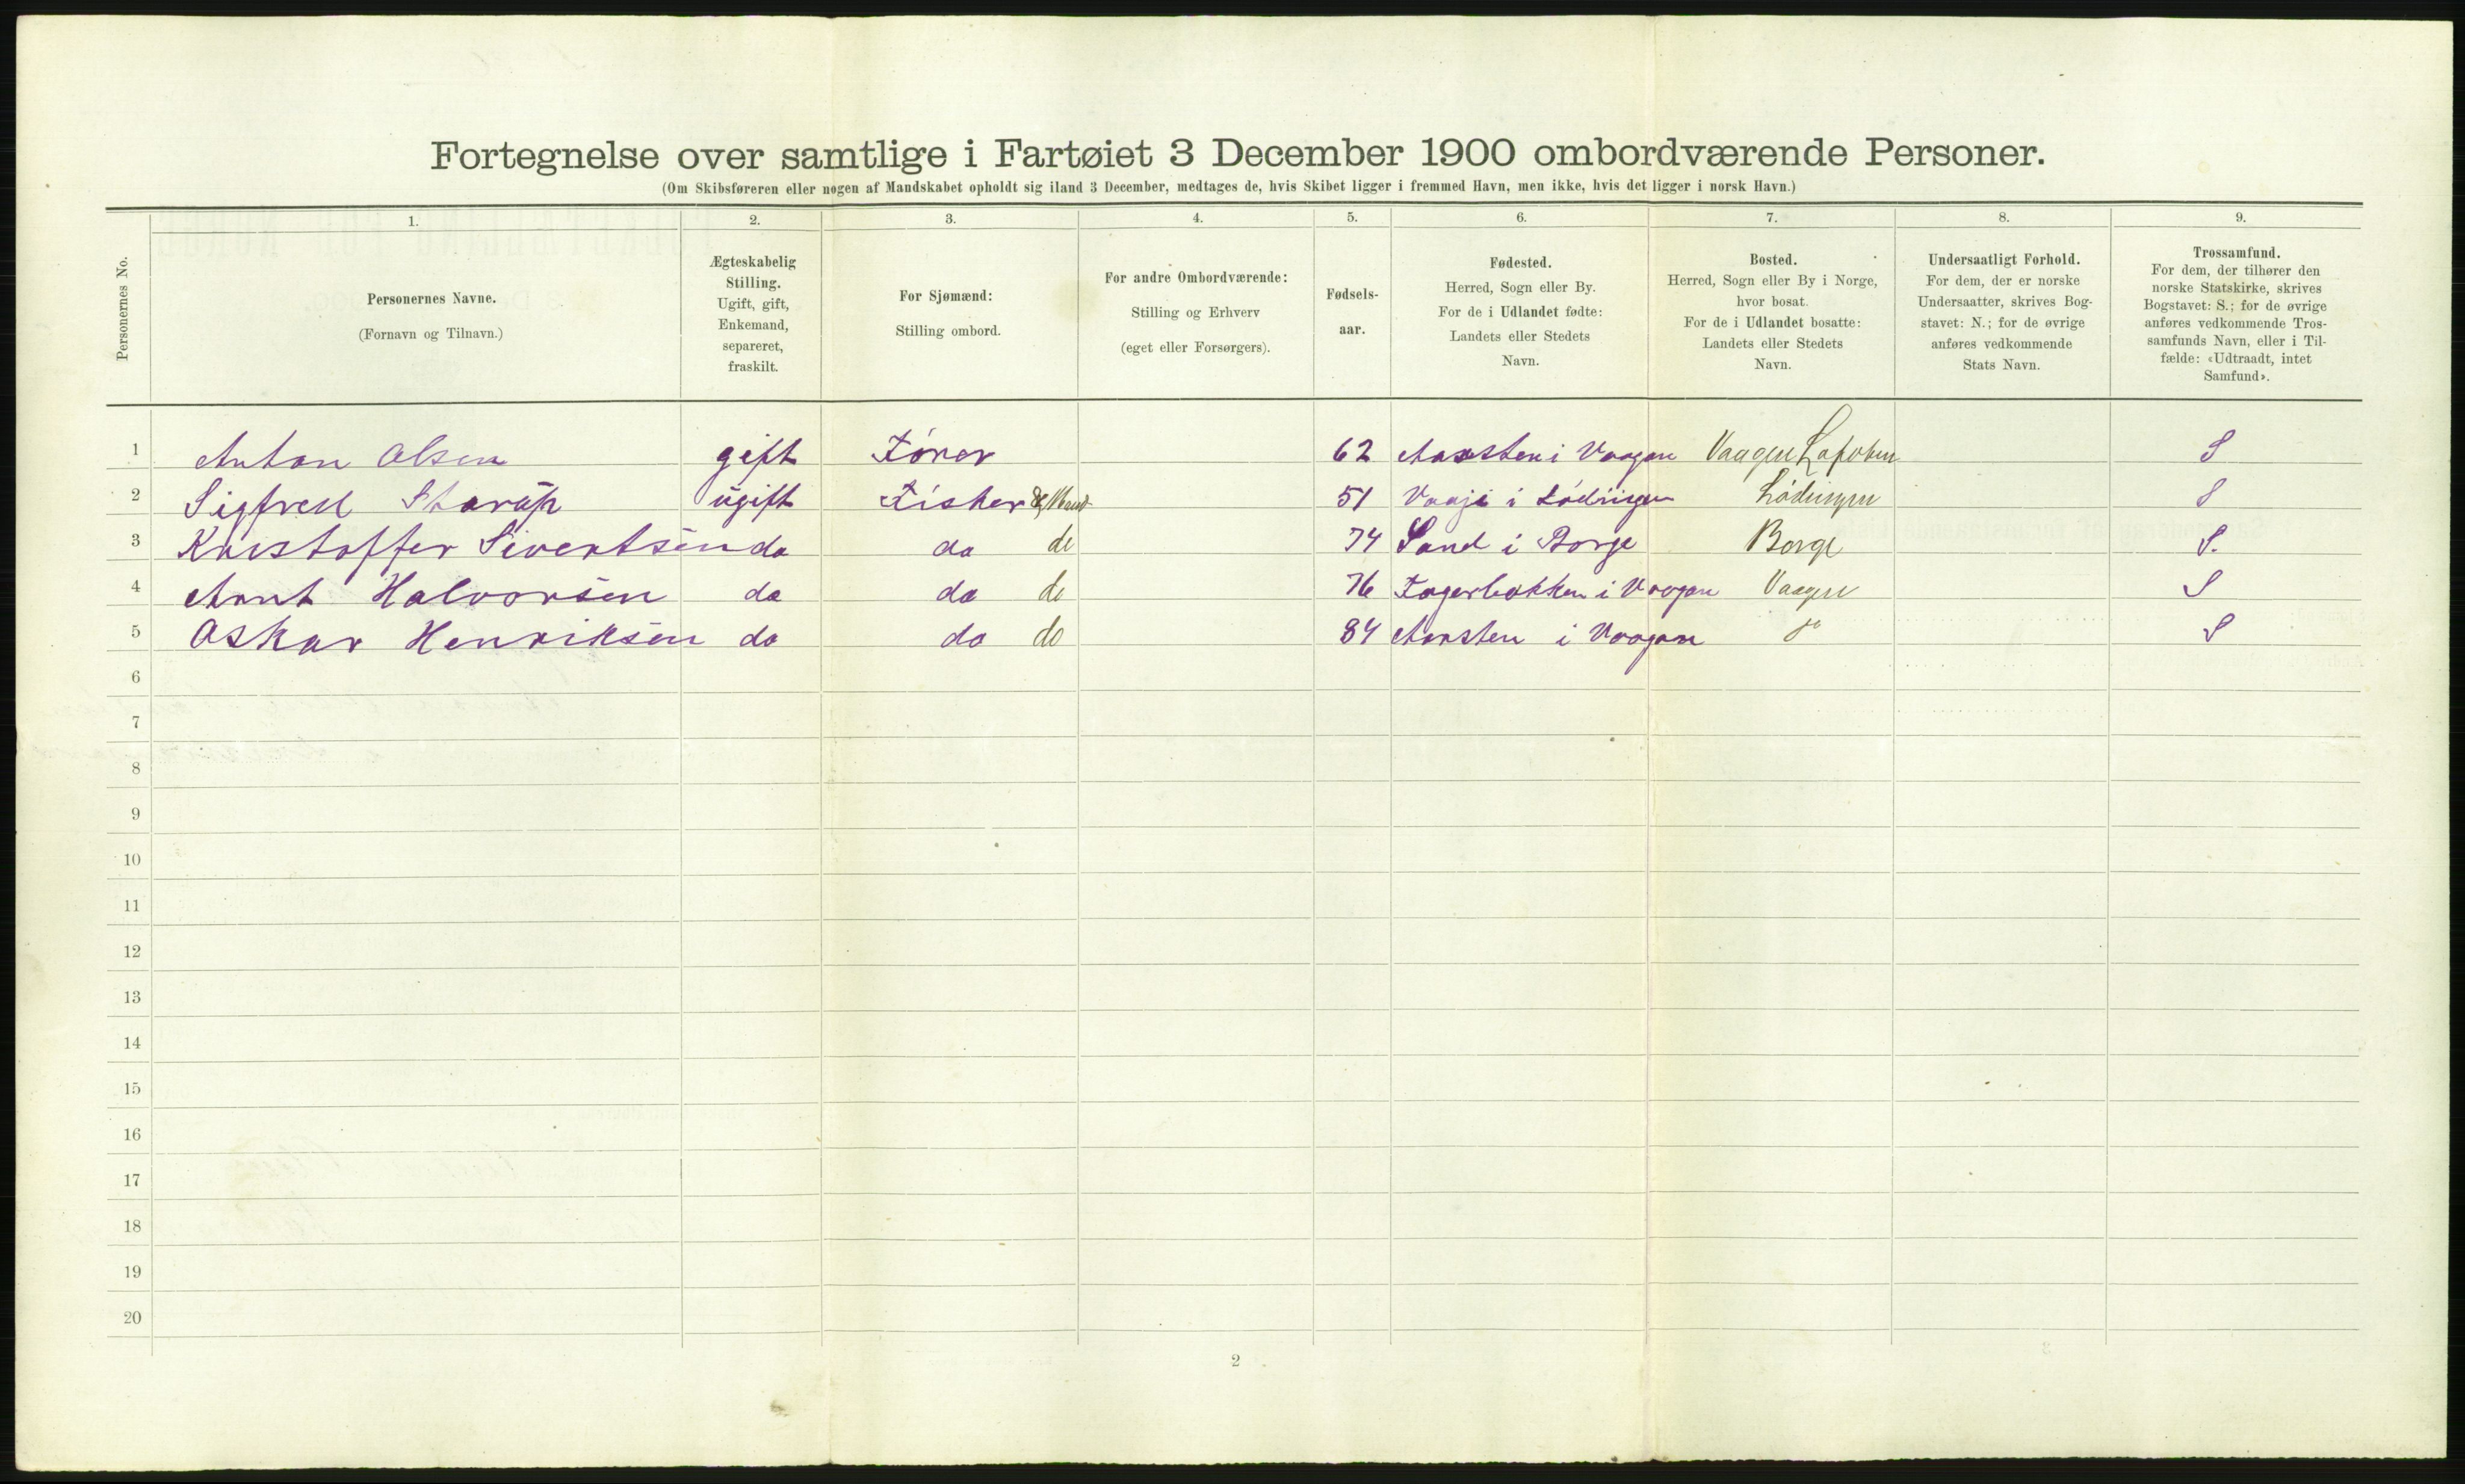 Fortegnelse over samtlige i Fartøiet 3 December 1900 ombordværende Personer.
(Om Skibsføreren eller nogen af Mandskabet opholdt sig iland 3 December, medtages de, hvis Skibet ligger i fremmed Havn, men ikke, hvis det ligger i norsk Havn.)
Personernes No.
1. 2. 3. 4. 5. 6. 7. 8. 9.
Personernes Navne.
(Fornavn og Tilnavn.)
Ægteskabelig
Stilling.
Ugift, gift,
Enkemand,
separeret,
fraskilt.
For Sjømænd:
Stilling ombord.
For andre Ombordværende:
Stilling og Erhverv
(eget eller Forsørgers).
Fødsels-
aar.
Fødested.
Herred, Sogn eller By.
For de i Udlandet fødte:
Landets eller Stedets
Navn.
Bosted.
Herred, Sogn eller By i Norge,
hvor bosat.
For de i Udlandet bosatte:
Landets eller Stedets
Navn.
Undersaatligt Forhold.
For dem, der er norske
Undersaatter, skrives Bog-
stavet: N.; for de øvrige
anføres vedkommende
Stats Navn.
Trossamfund.
For dem, der tilhører den
norske Statskirke, skrives
Bogstavet: S.; for de øvrige
anføres vedkommende Tros-
samfunds Navn, eller i Til-
fælde: «Udtraadt, intet
Samfund».
1 Anton Olsen gift Förer 62 i Vaagan Vaagen Lofoten S
2 Sigfred ugift Fisker 51 i Lödingen Lödingen S
3 Kristoffer Sivertsen do do do 74 Sand i Borge Borge S.
4 Arnt Halvorsen do do do 76 Fagerbakken i Vaagan Vaagen S
5 Oskar Henriksen do do do 84 i Vaagan do S
6
7
8
9
10
11
12
13
14
15
16
17
18
19
20
2